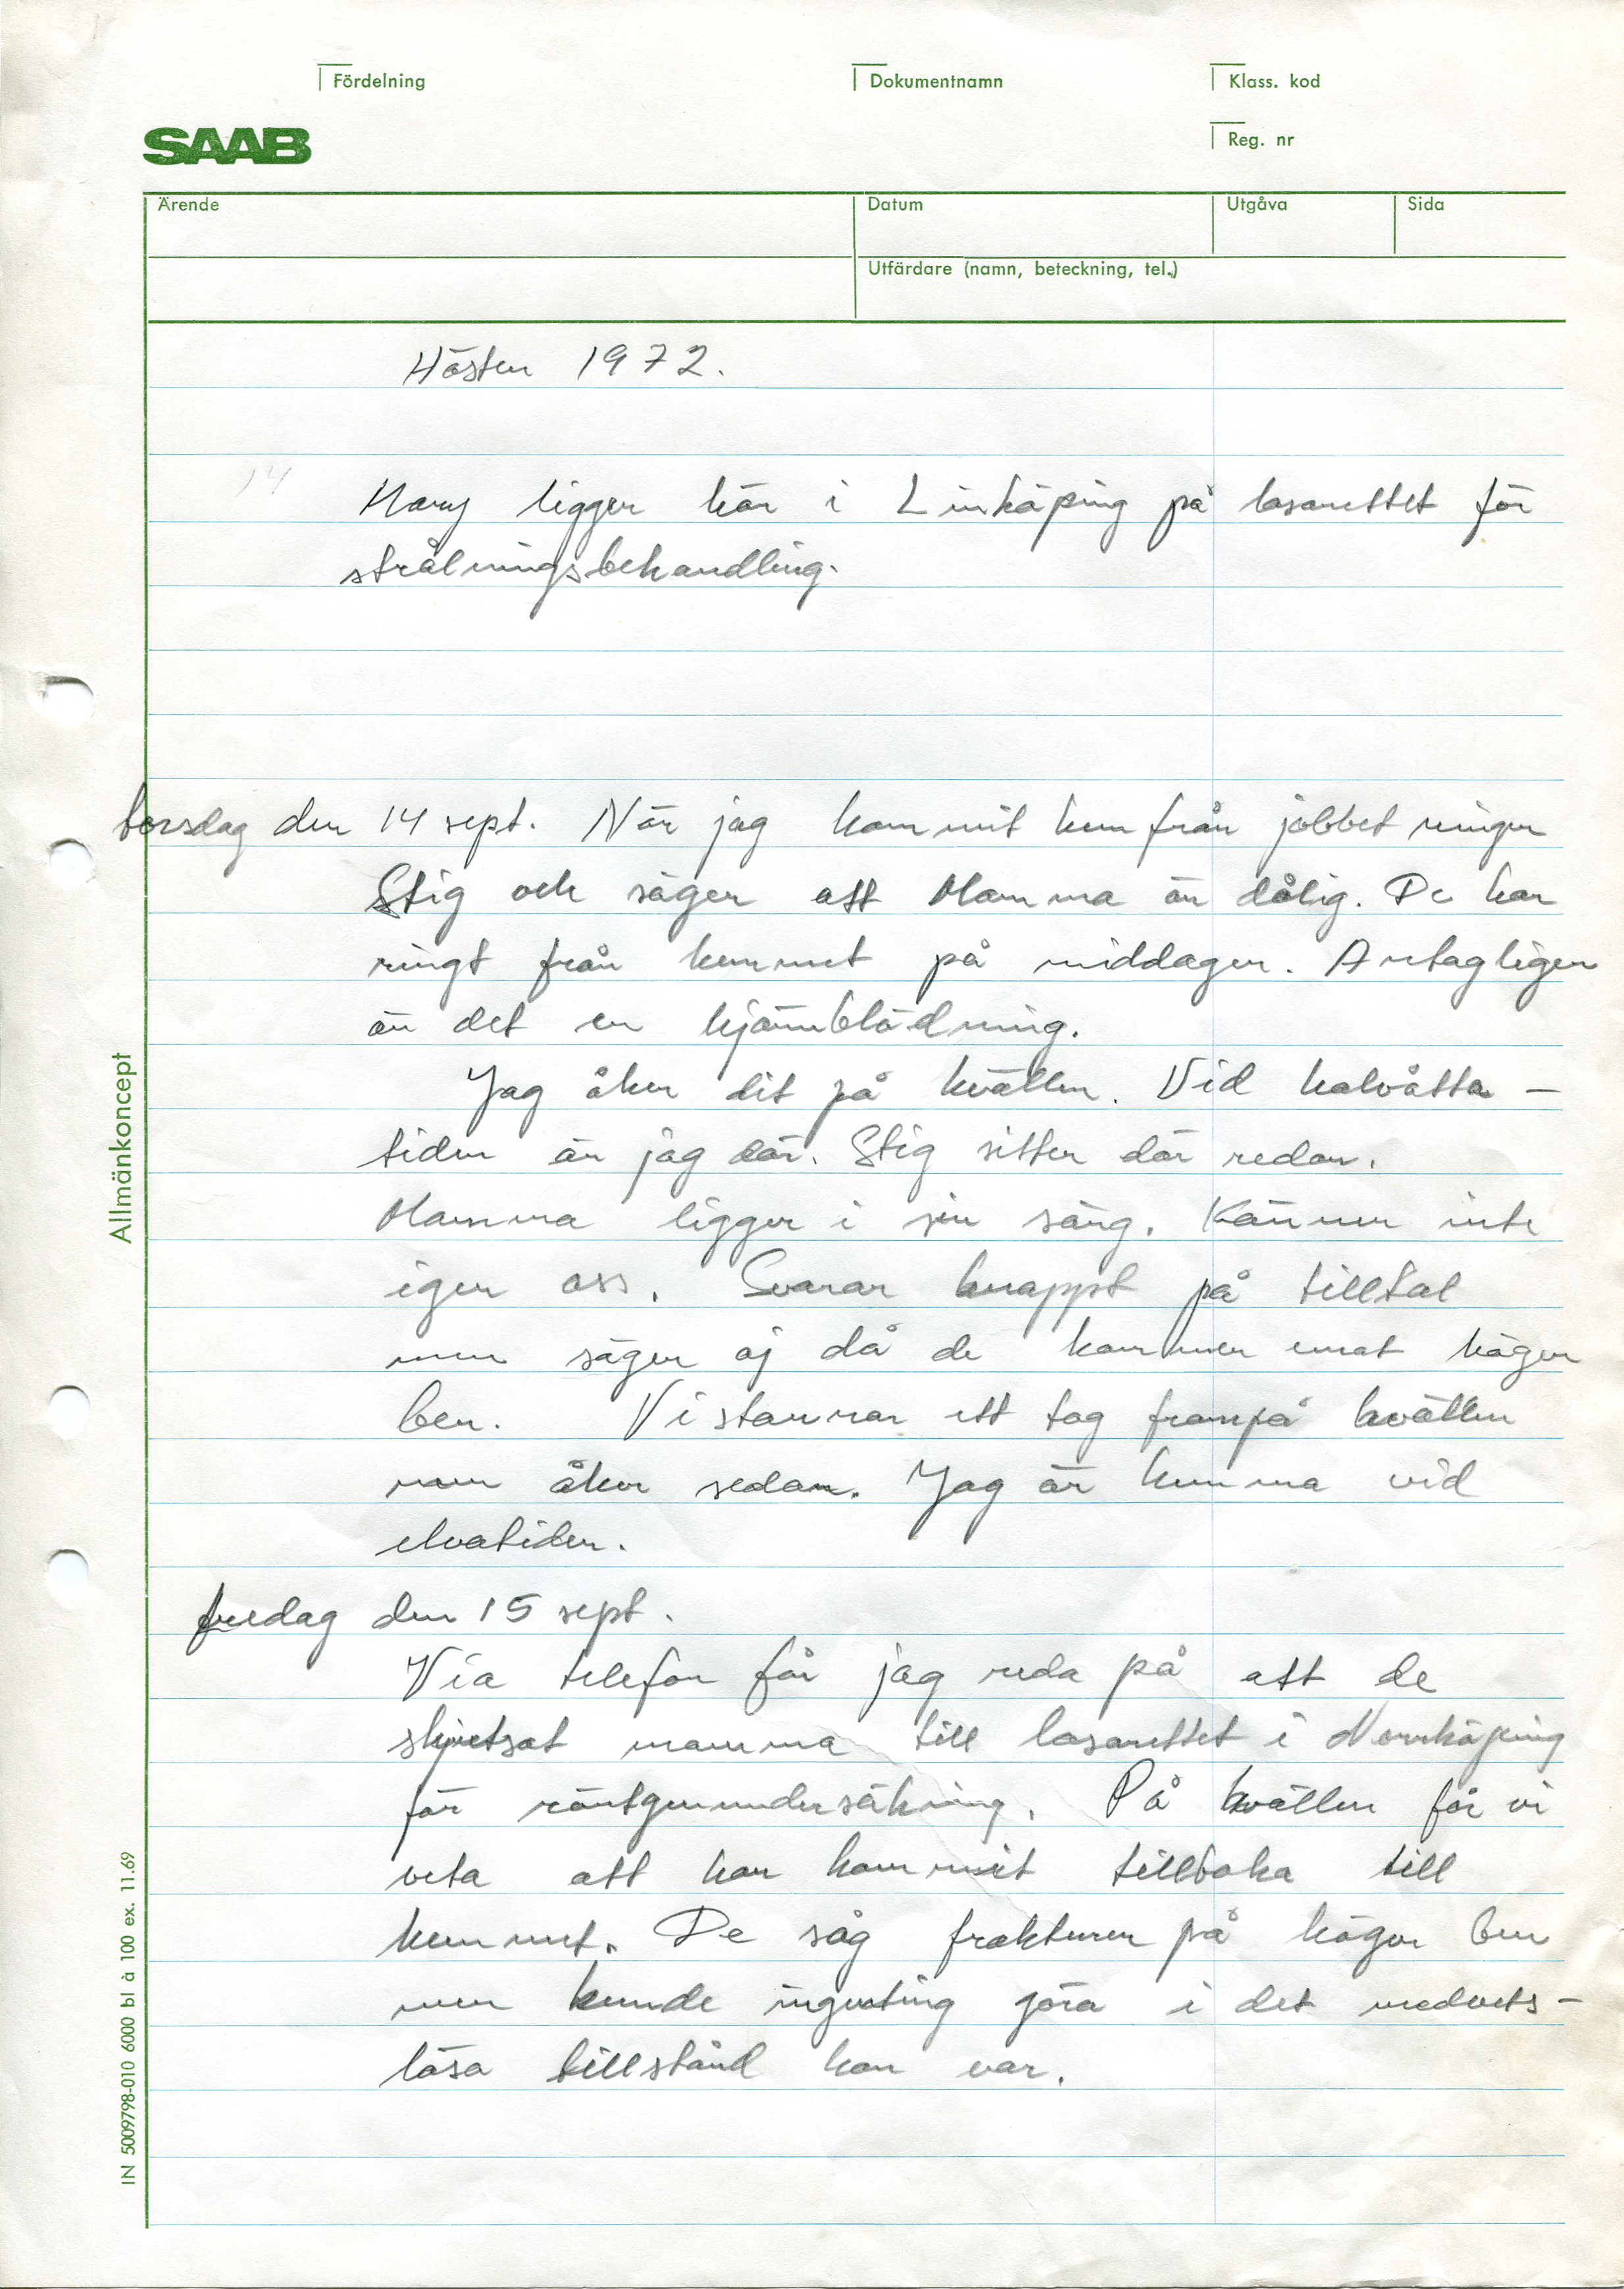 Fördelning
Dokumentnamn
Klass. kod
SAAB
Reg. nr
Ärende
Datum
Utgåva
Sida
Utfärdare (namn, beteckning, tel.)
Hösten 1972.
14
Mary ligger här i Linköping på lasarettet för
strålningsbehandling.
torsdag den 14 sept. När jag kommit hem från jobbet ringer
Stig och säger att Mamma är dålig. De har
ringt från hemmet på middagen. Antagligen
är det en hjärnblödning.
Jag åker dit på kvällen. Vid halvåtta-
tiden är jag där. Stig sitter där redan.
Mamma ligger i sin säng. Känner inte
igen oss. Svarar knappt på tilltal
men säger aj då de kommer emot höger
ben. Vi stannar ett tag frampå kvällen
men åker sedan. Jag är hemma vid
elvatiden.
fredag den 15 sept.
Via telefon får jag reda på att de
skjutsat mamma till lasarettet i Norrköping
för röntgenundersökning. På kvällen får vi
veta att hon kommit tillbaka till
hemmet. De såg frakturen på höger ben
men kunde ingenting göra i det medvets-
lösa tillstånd hon var.
Allmänkoncept
IN 5009798-010 6000 bl à 100 ex. 11.69